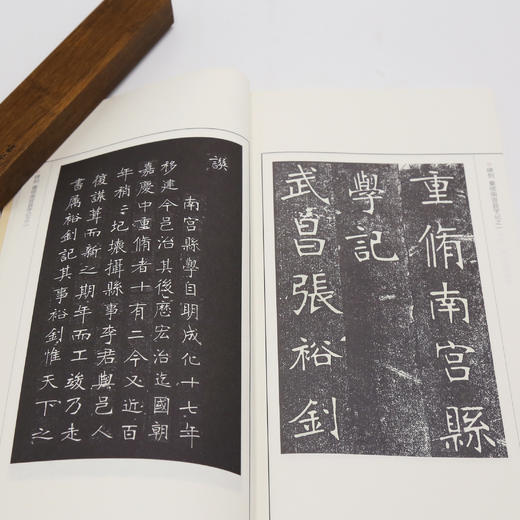 重脩南宫縣
學記
武昌張裕釗
譔
南宫縣學自明成化十七年
移建今邑治其後歷宏治迄國朝
嘉慶中重脩者十有二今又近百
年稍〻圮壞攝縣事李君與邑人
復謀葺而新之期年而工竣乃走
書属裕釗記其事裕釗惟天下之